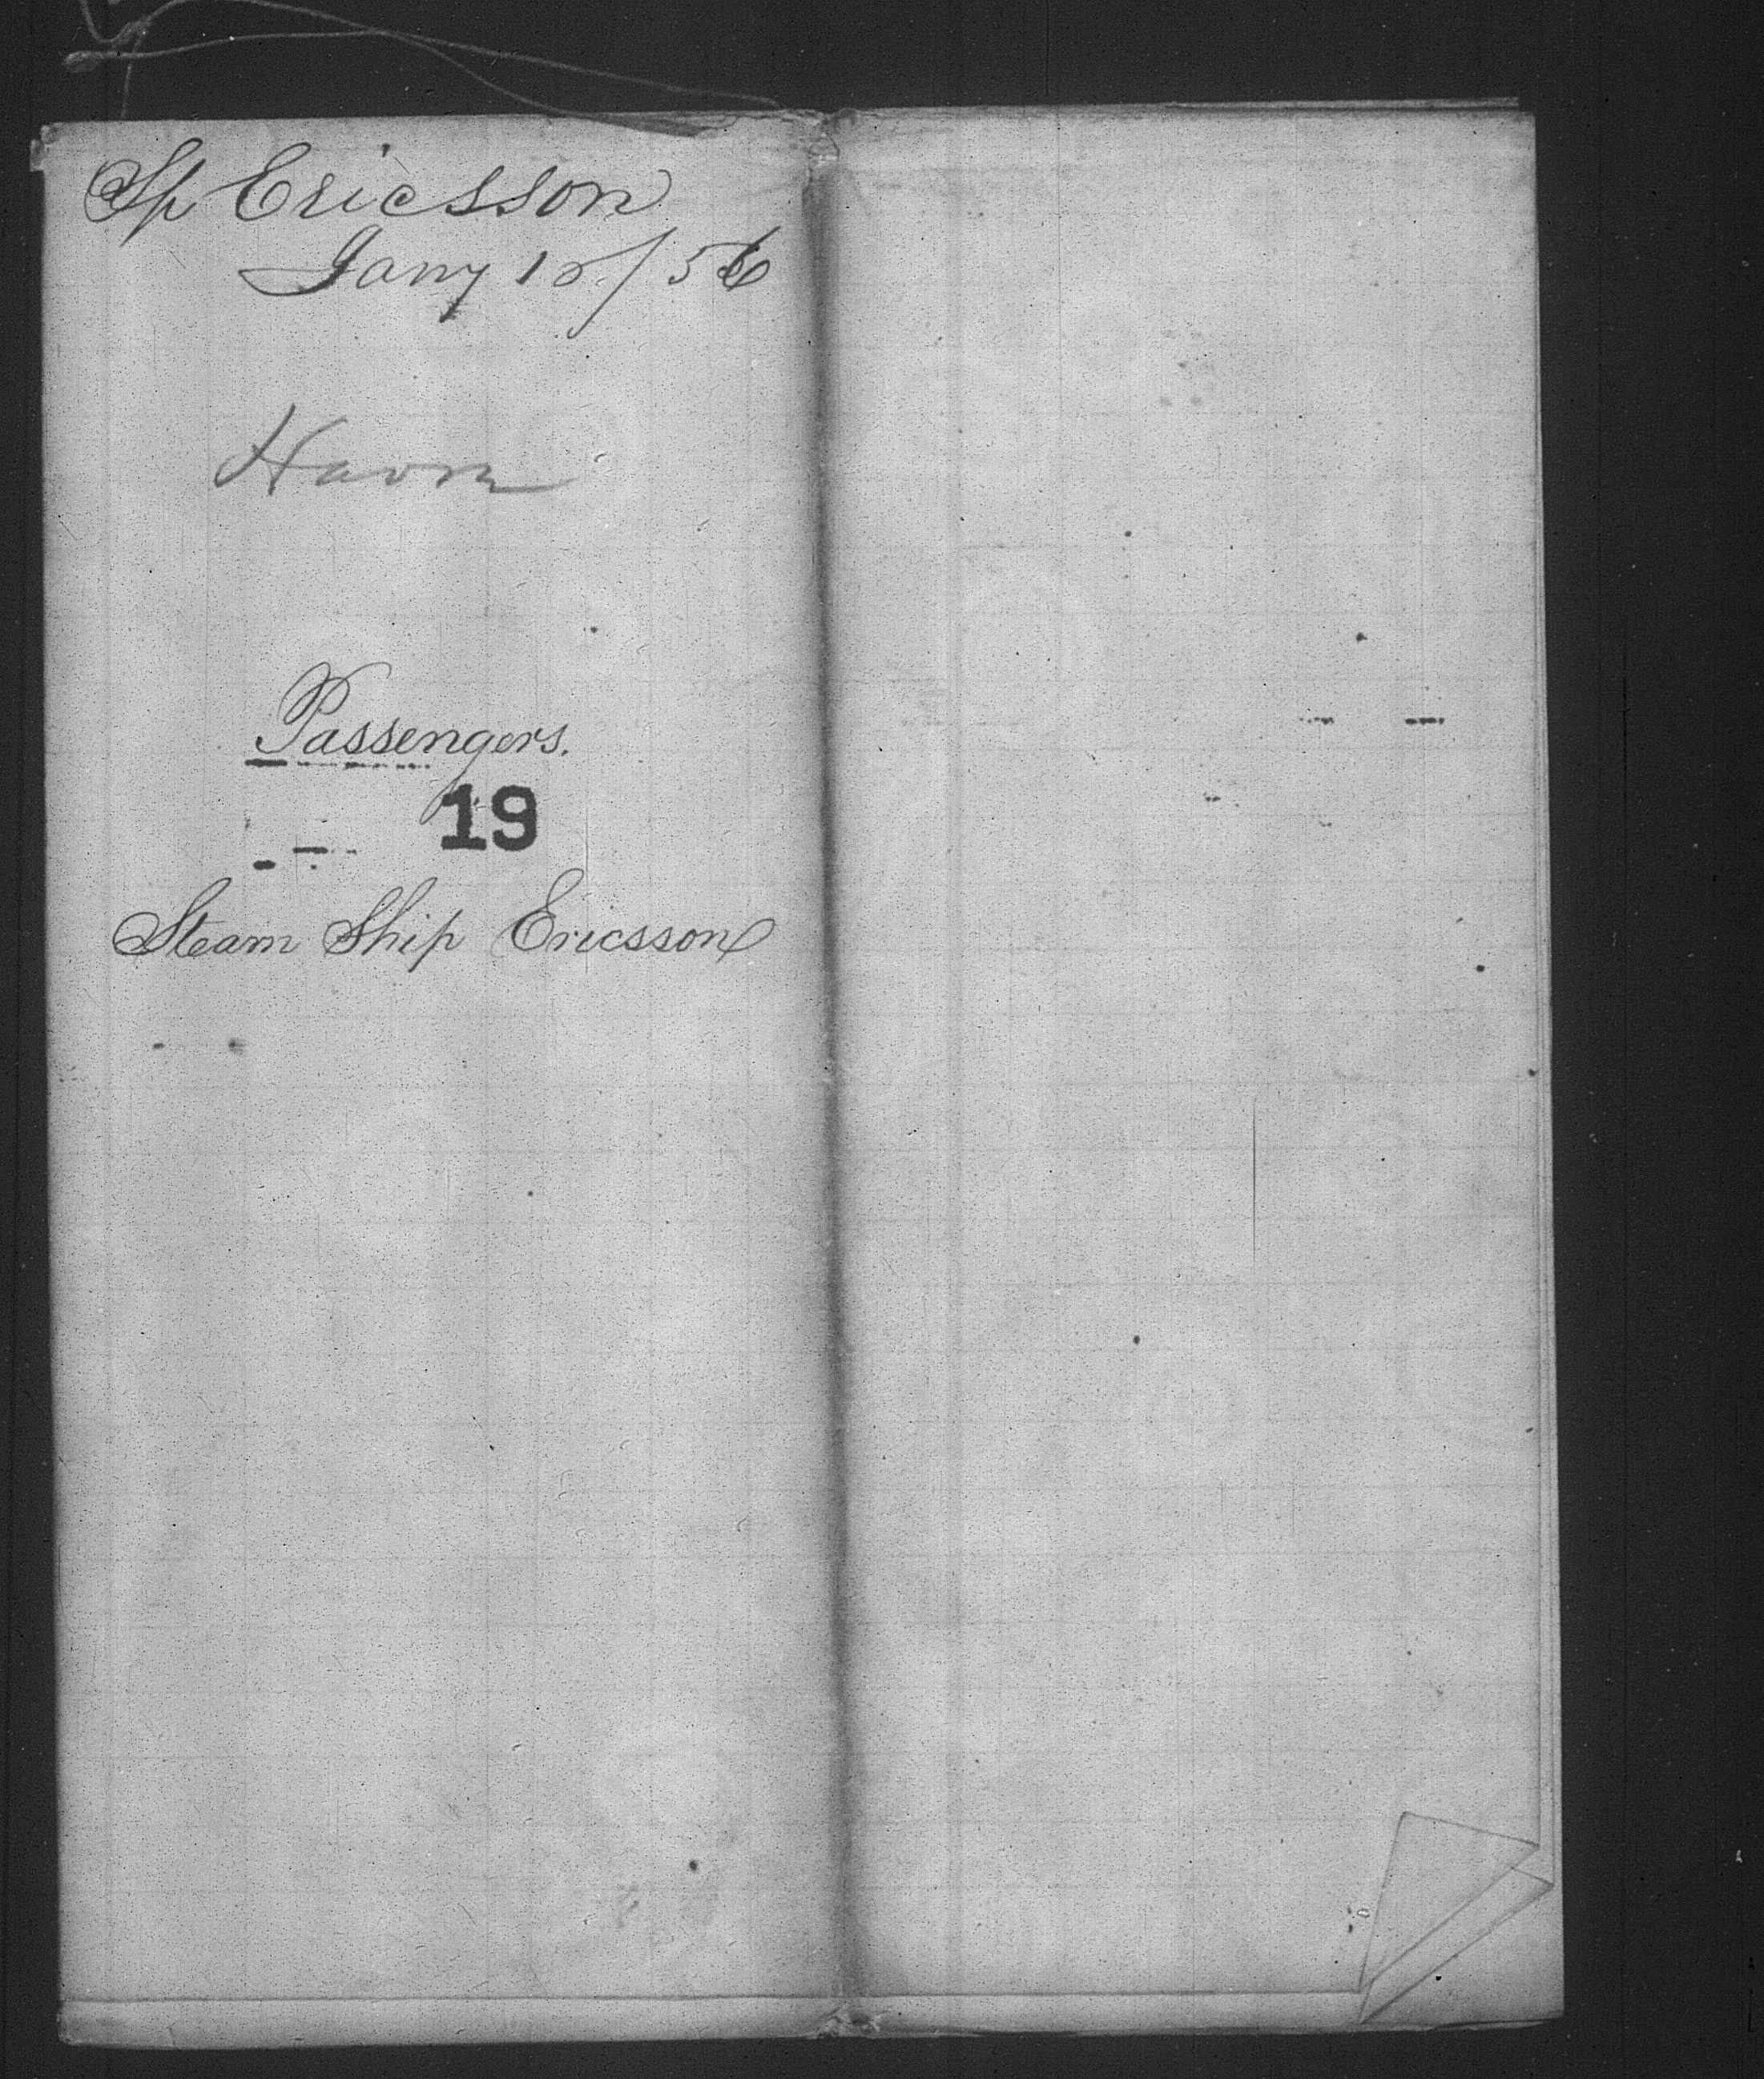 Sp Ericsson
Jany 15/56
Havre
Passengers.
19
Steam Ship Ericsson